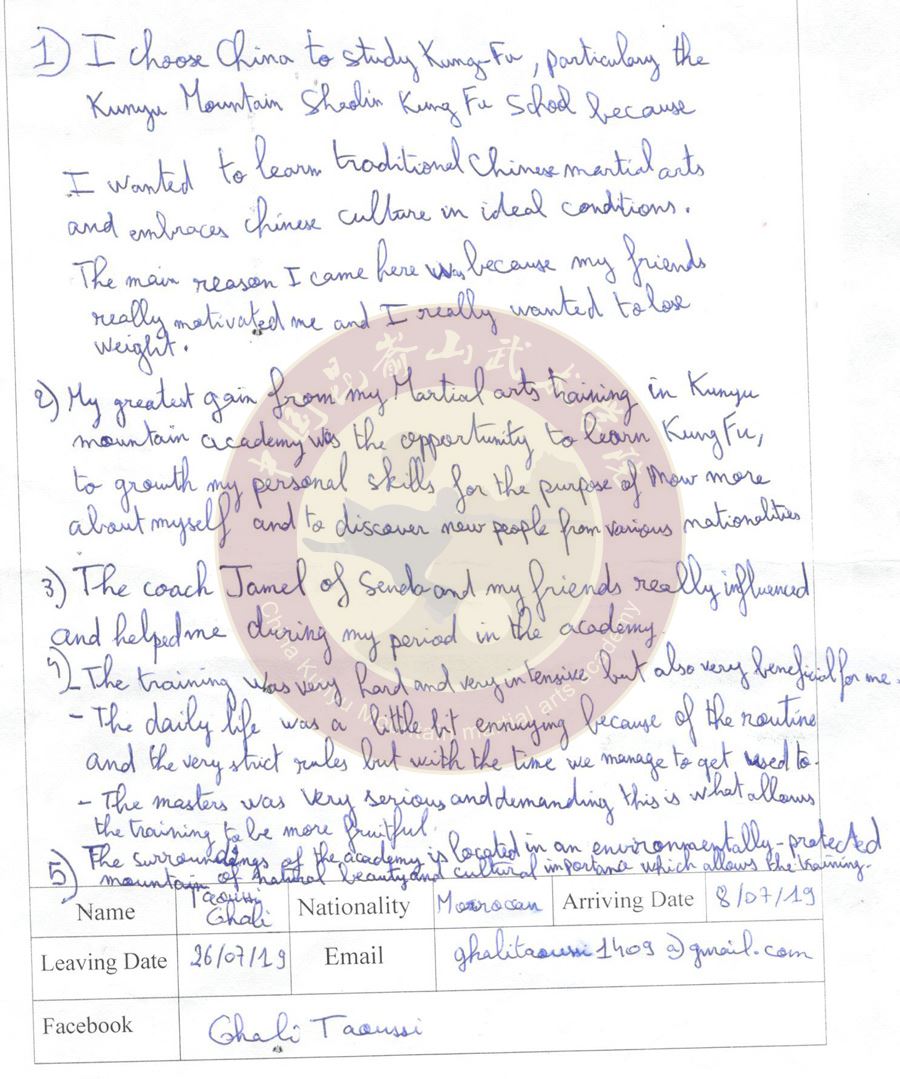 1) I choose China to study Kung-Fu, particulary the
Kunyu Mountain Shaolin Kung Fu School because
I wanted to learn traditional Chinese martial arts
and embraces chinese culture in ideal conditions.
The main reason I came here was because my friends
really motivated me and I really wanted to lose
weight.
2) My greatest gain from my Martial arts training in Kunyu
mountain academy was the opportunity to learn Kung Fu,
to growth my personal skills for the purpose of know more
about myself and to discover new people from various nationalities
3) The coach Jamel of Senda and my friends really influenced
and helped me during my period in the academy
4) - The training was very hard and very intensive but also very beneficial for me.
- The daily life was a little bit ennuying because of the routine
and the very strict rules but with the time we manage to get used to.
- The masters was very serious and demanding this is what allows
the training to be more fruitful.
5) The surroundings of the academy is located in an environmentally-protected
mountain of natural beauty and cultural importance which allows the training.
Name Taoussi Ghali Nationality Morrocan Arriving Date 8/07/19
Leaving Date 26/07/19 Email ghalitaoussi1409@gmail.com
Facebook Ghali Taoussi
China Kunyu Mountain martial arts academy